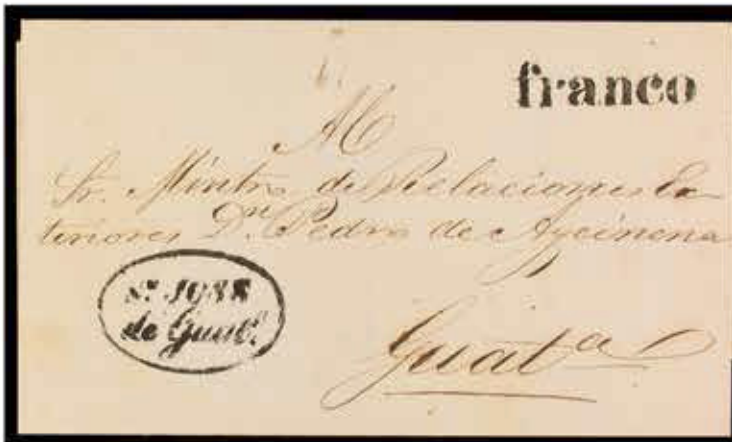 franco
Al
Sr. Mintro de Relaciones Ex-
teriores Dn. Pedro de Aycinena
Sn. JOSE
de Guata.
Guata